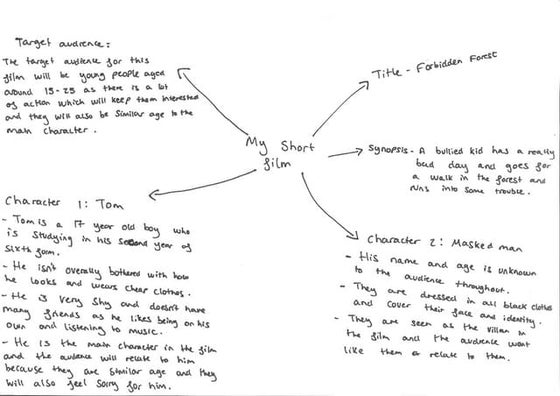 My Short
film
Target audience:
The target audience for this
film will be young people aged
around 15-25 as there is a lot
of action which will keep them interested
and they will also be similar age to the
main character.
Title - Forbidden Forest
Synopsis - A bullied kid has a really
bad day and goes for
a walk in the forest and
runs into some trouble.
Character 1: Tom
- Tom is a 17 year old boy who
is studying in his second year of
sixth form.
- He isn't overally bothered with how
he looks and wears cheap clothes.
- He is very shy and doesn't have
many friends as he likes being on his
own and listening to music.
- He is the main character in the film
and the audience will relate to him
because they are similar age and they
will also feel sorry for him.
Character 2: Masked man
- His name and age is unknown
to the audience throughout.
- They are dressed in all black clothes
and cover their face and identity.
- They are seen as the villan in
the film and the audience wont
like them or relate to them.